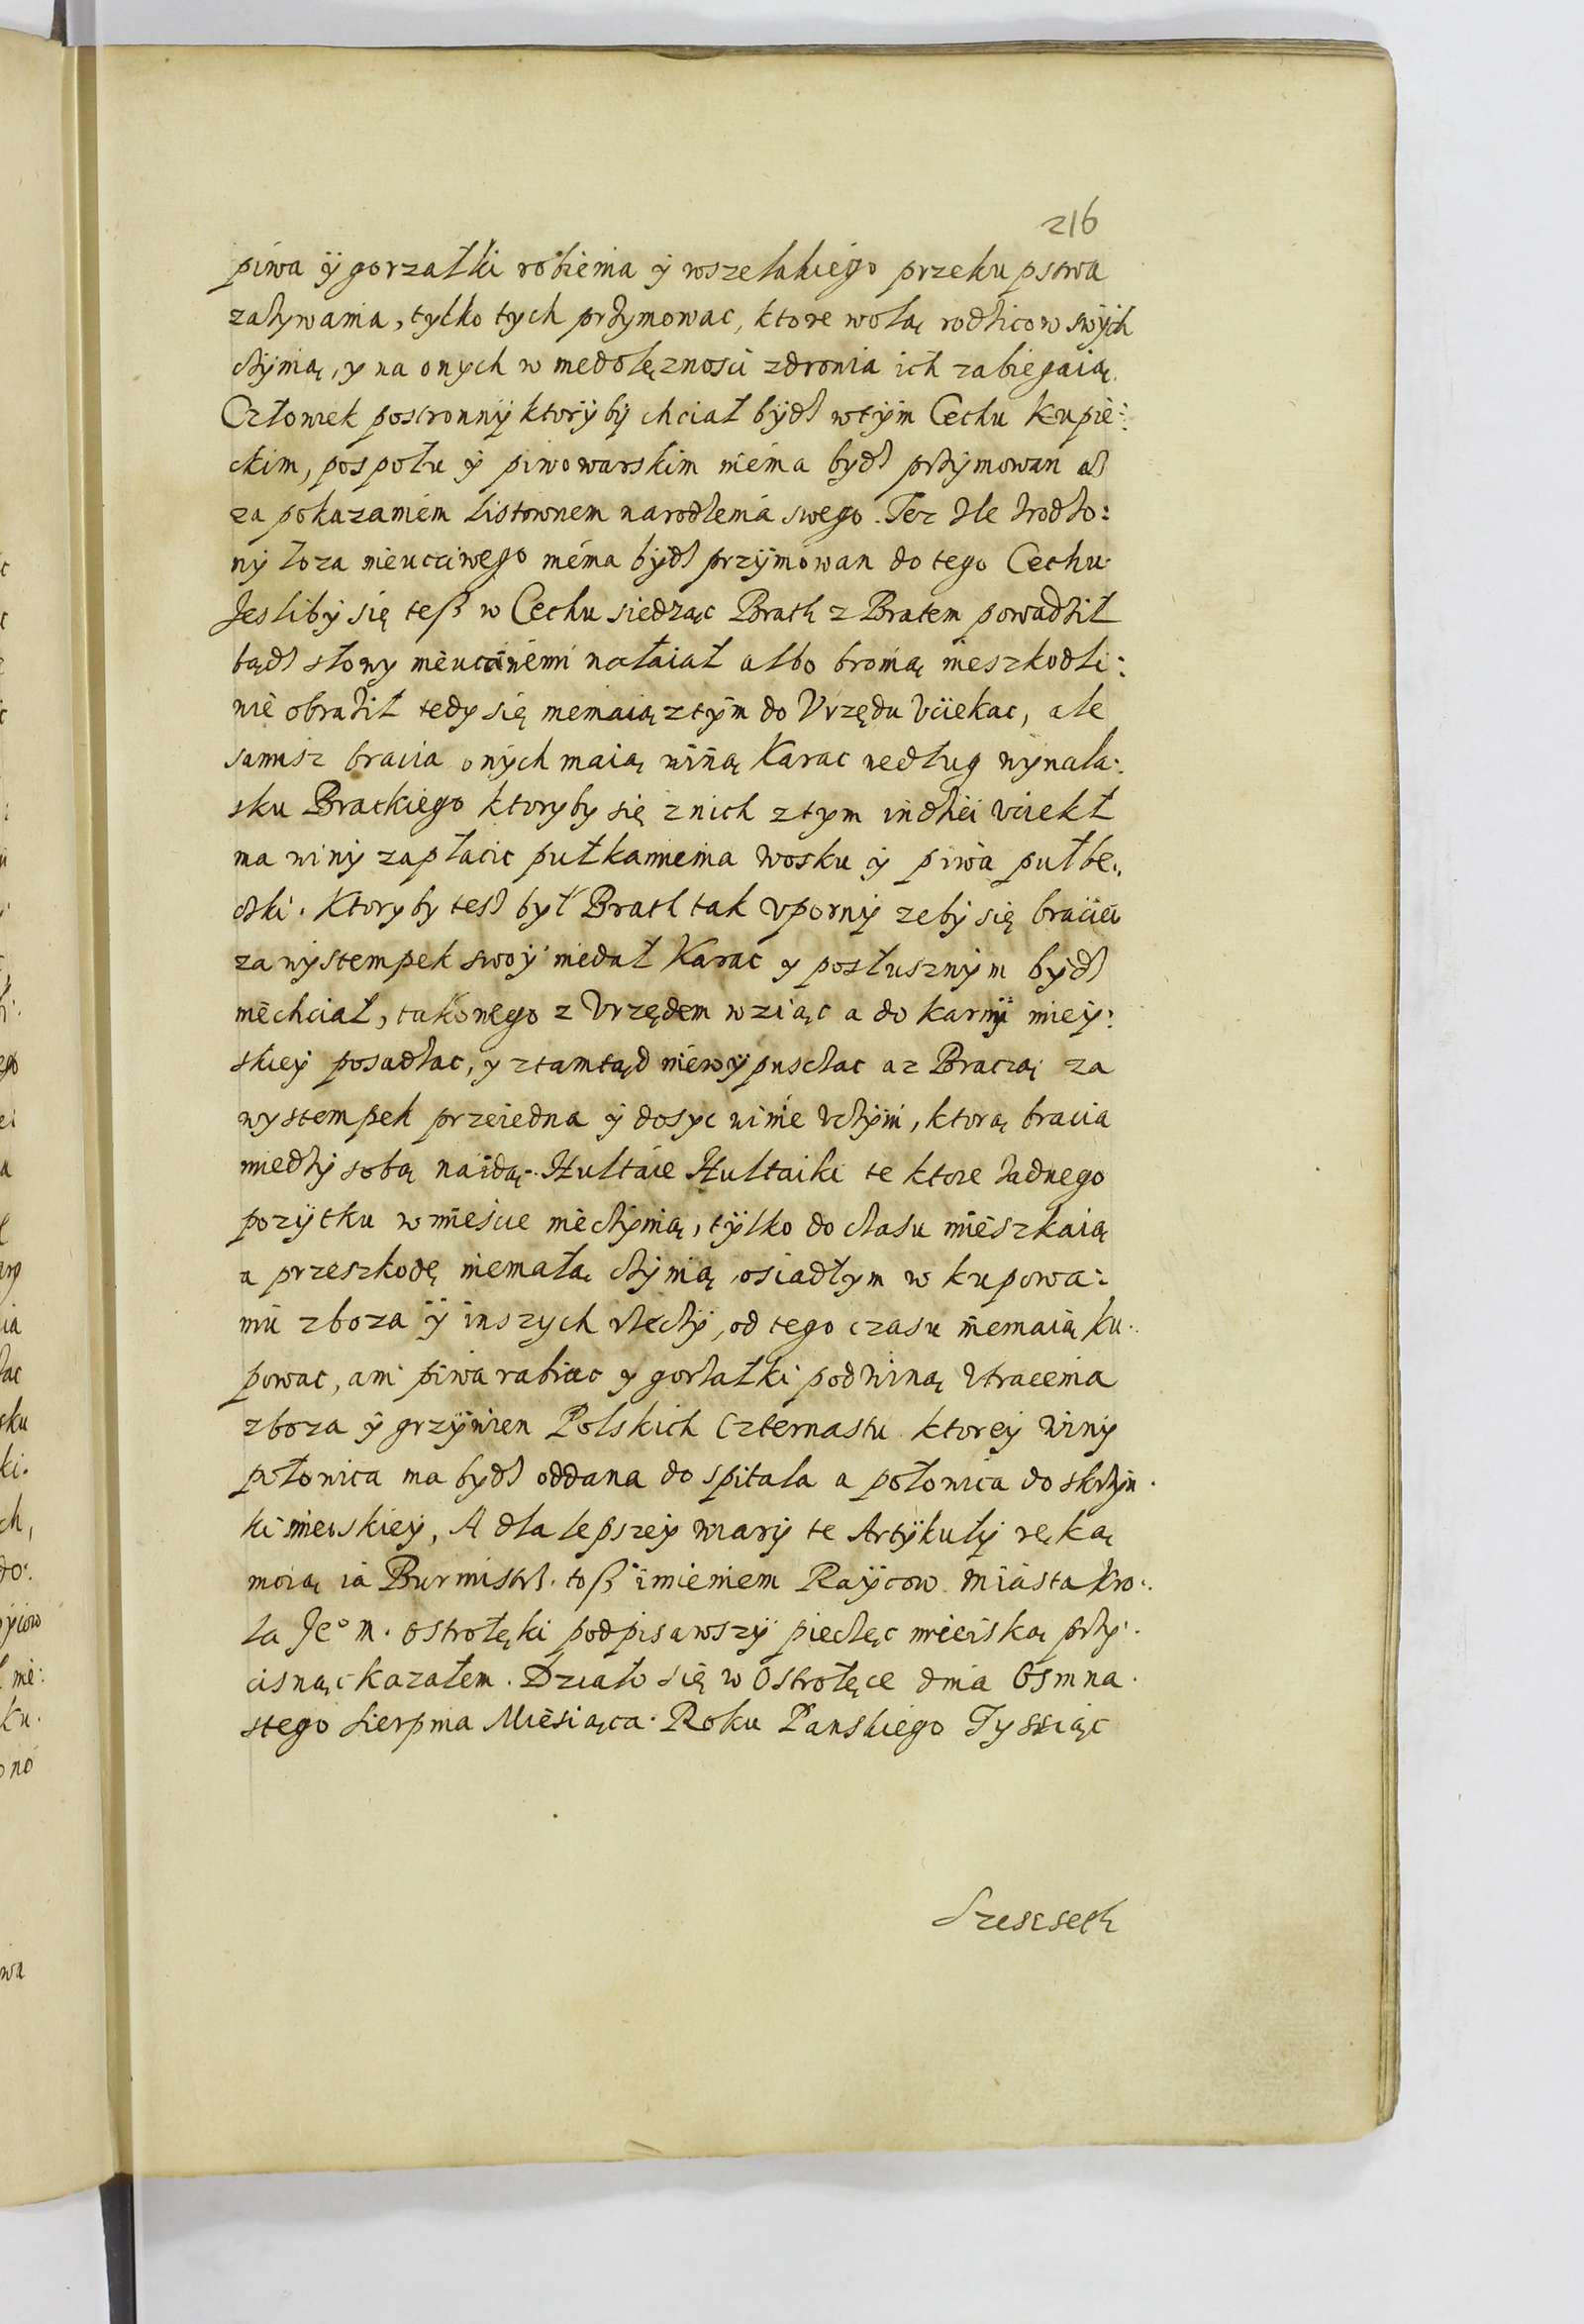 216
piwa ÿ gorzałki robienia ÿ wszelakiego przekupstwa
zażywania, tylko tych przÿmowac, ktore wolą rodzicow swÿch
czÿnią, y na onych w niedolęznosci zdrowia ich zabiegaią.
Człowiek postronnÿ ktorÿ bÿ chciał bÿdź w tÿm Cechu Kupie:
ckim, pospołu ÿ piwowarskim niema bydź przÿmowan aż
za pokazaniem listownem narodzenia swego. Tez zle zrodzo:
nÿ łoza nieucciwego niema bÿdź przÿmowan do tego Cechu.
Jesliby się teß w Cechu siedząc Brath z Bratem powadził
bądź słowy nieucciwemi nałaiał albo bronią nieszkodli:
wie obraził tedy się niemaią z tÿm do Vrzędu vciekac, ale
samisz bracia onÿch maią winą Karac według wÿnala:
sku Brackiego ktoryby się z nich z tym indziei vciekł
ma winÿ zapłacic pułkamienia wosku ÿ piwa pułbe:
czki. Ktoryby tesz był Brath tak vpornÿ zebÿ się braciei
za wÿstempek swoÿ niedał Karac y posłusznÿm bÿdź
niechciał, takowego z Vrzędem wziąc a do karnÿ mieÿ:
skieÿ posadzac, y ztamtąd niewÿpuszczac az Braczą za
wystempek przeiedna ÿ dosyc winie vczÿni, ktorą bracia
miedzÿ sobą naidą. Hultaie Hultaiki te ktore zadnego
pozÿtku w mieście nieczÿnią, tÿlko do czasu mieszkaią
a przeszkodę niemałą czÿnią osiadłym w kupowa:
niu zboza ÿ inszych rzeczÿ, od tego czasu niemaią ku:
powac, ani piwa rabiac y gorzałki pod winą vtracenia
zboza ÿ grzÿwien Polskich Czternastu ktoreÿ winÿ
połowica ma bydź oddana do spitala a połowica do skrzÿn:
ki mieiskieÿ, A dla lepszeÿ wiarÿ te Artÿkułÿ ręką
moią ia Burmistrz toß imieniem Raÿcow miasta Kro:
la Jeo M. Ostrołęki podpisawszÿ pieczęc mieiską przÿ:
cisnąc kazałem. Działo się w Ostrołęce dnia Osmna:
stego Sierpnia Miesiąca Roku Panskiego Tyssiąc
Szescseth